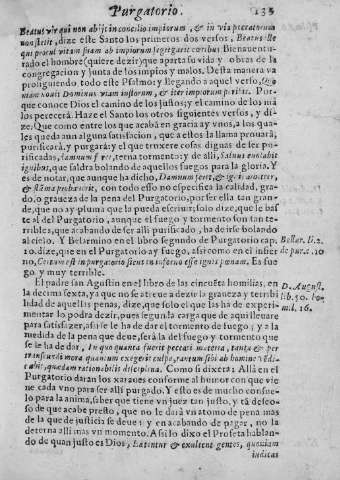 Purgatorio. 135
Beatus vir qui non abijt in concilio impiorum, & in via peccatorum
non stetit, dize este Santo los primeros dos versos, Beatus
qui procul vitam suam ab impiorum segregarit cœtibus Bienauentu-
rado el hombre (quiere dezir) que aparta su vida y obras de la
congregacion y junta de los impios y malos. Desta manera va
prosiguiendo todo este Psalmo; y llegando a aquel verso,
nouit Dominus viam iustorum, & iter impiorum peribit. Por-
que conoce Dios el camino de los justos; y el camino de los ma
los perecerà. Haze el Santo los otros siguientes versos, y di-
ze, Que como entre los que acabã en gracia ay vnos, a los qua-
les queda aun alguna satisfacion, que a estos la llama prouarà,
purificarà, y purgarà: y el que truxere cosas dignas de ser pu-
rificadas, damnum terna tormento: y de alli, Saluus
ignibus, que saldra bolando de aquellos fuegos para la gloria. Y
es de notar, que aunque ha dicho, Damnum feret, &
& flãma con todo esso no especifica la calidad, gra-
do, o graueza de la pena del Purgatorio, por ser ella tan gran-
de, que no ay pluma que la pueda escriuir; solo dize, que le bas
te al del Purgatorio, aunque el fuego y tormento son tan te-
rribles, que acabando de ser alli purificado, ha de irse bolando
al cielo. Y Belarmino en el libro segundo de Purgatorio cap. Bellar. li. 2.
10. dize, que en el Purgatorio ay fuego, assi como en el infier de pur. c. 10
no, Certum est in purgatorio sicut in inferno esse ignis pœnam. Es fue
go, y muy terrible.
El padre san Agustin en el libro de las cinquenta homilias, en D. August.
la decima sexta, ya que no se atreue a dezir la graueza y terribi lib. 50. ho
lidad de aquellas penas, dize, que solo el que las ha de experi- mil. 16.
mentar lo podra dezir, pues segun la carga que de aqui lleuare
para satisfazer, assi se le ha de dar el tormento de fuego; y a la
medida de la pena que deue, serà la del fuego y tormento que
se le ha de dar, In quo quanta fuerit peccati materia, tanta & per
transeundi mora quantum exegerit culpa, tantum sibi ab homine
quædam rationabilis disciplina. Como si dixera: Allà en el
Purgatorio daran los xaraues conforme al humor con que vie
ne cada vno para ser alli purgado. Y esto es de mucho consue-
lo para la anima, saber que tiene vn juez tan justo, y tã desseo-
so de que acabe presto, que no le darà vn atomo de pena mas
de la que de justicia se deue: y en acabando de pagar, no la
deterna alli mas vn momento. Assi lo dixo el Profeta hablan-
do de quan justo es Dios, Lætentur & exultent gentes, quoniam
iudicas